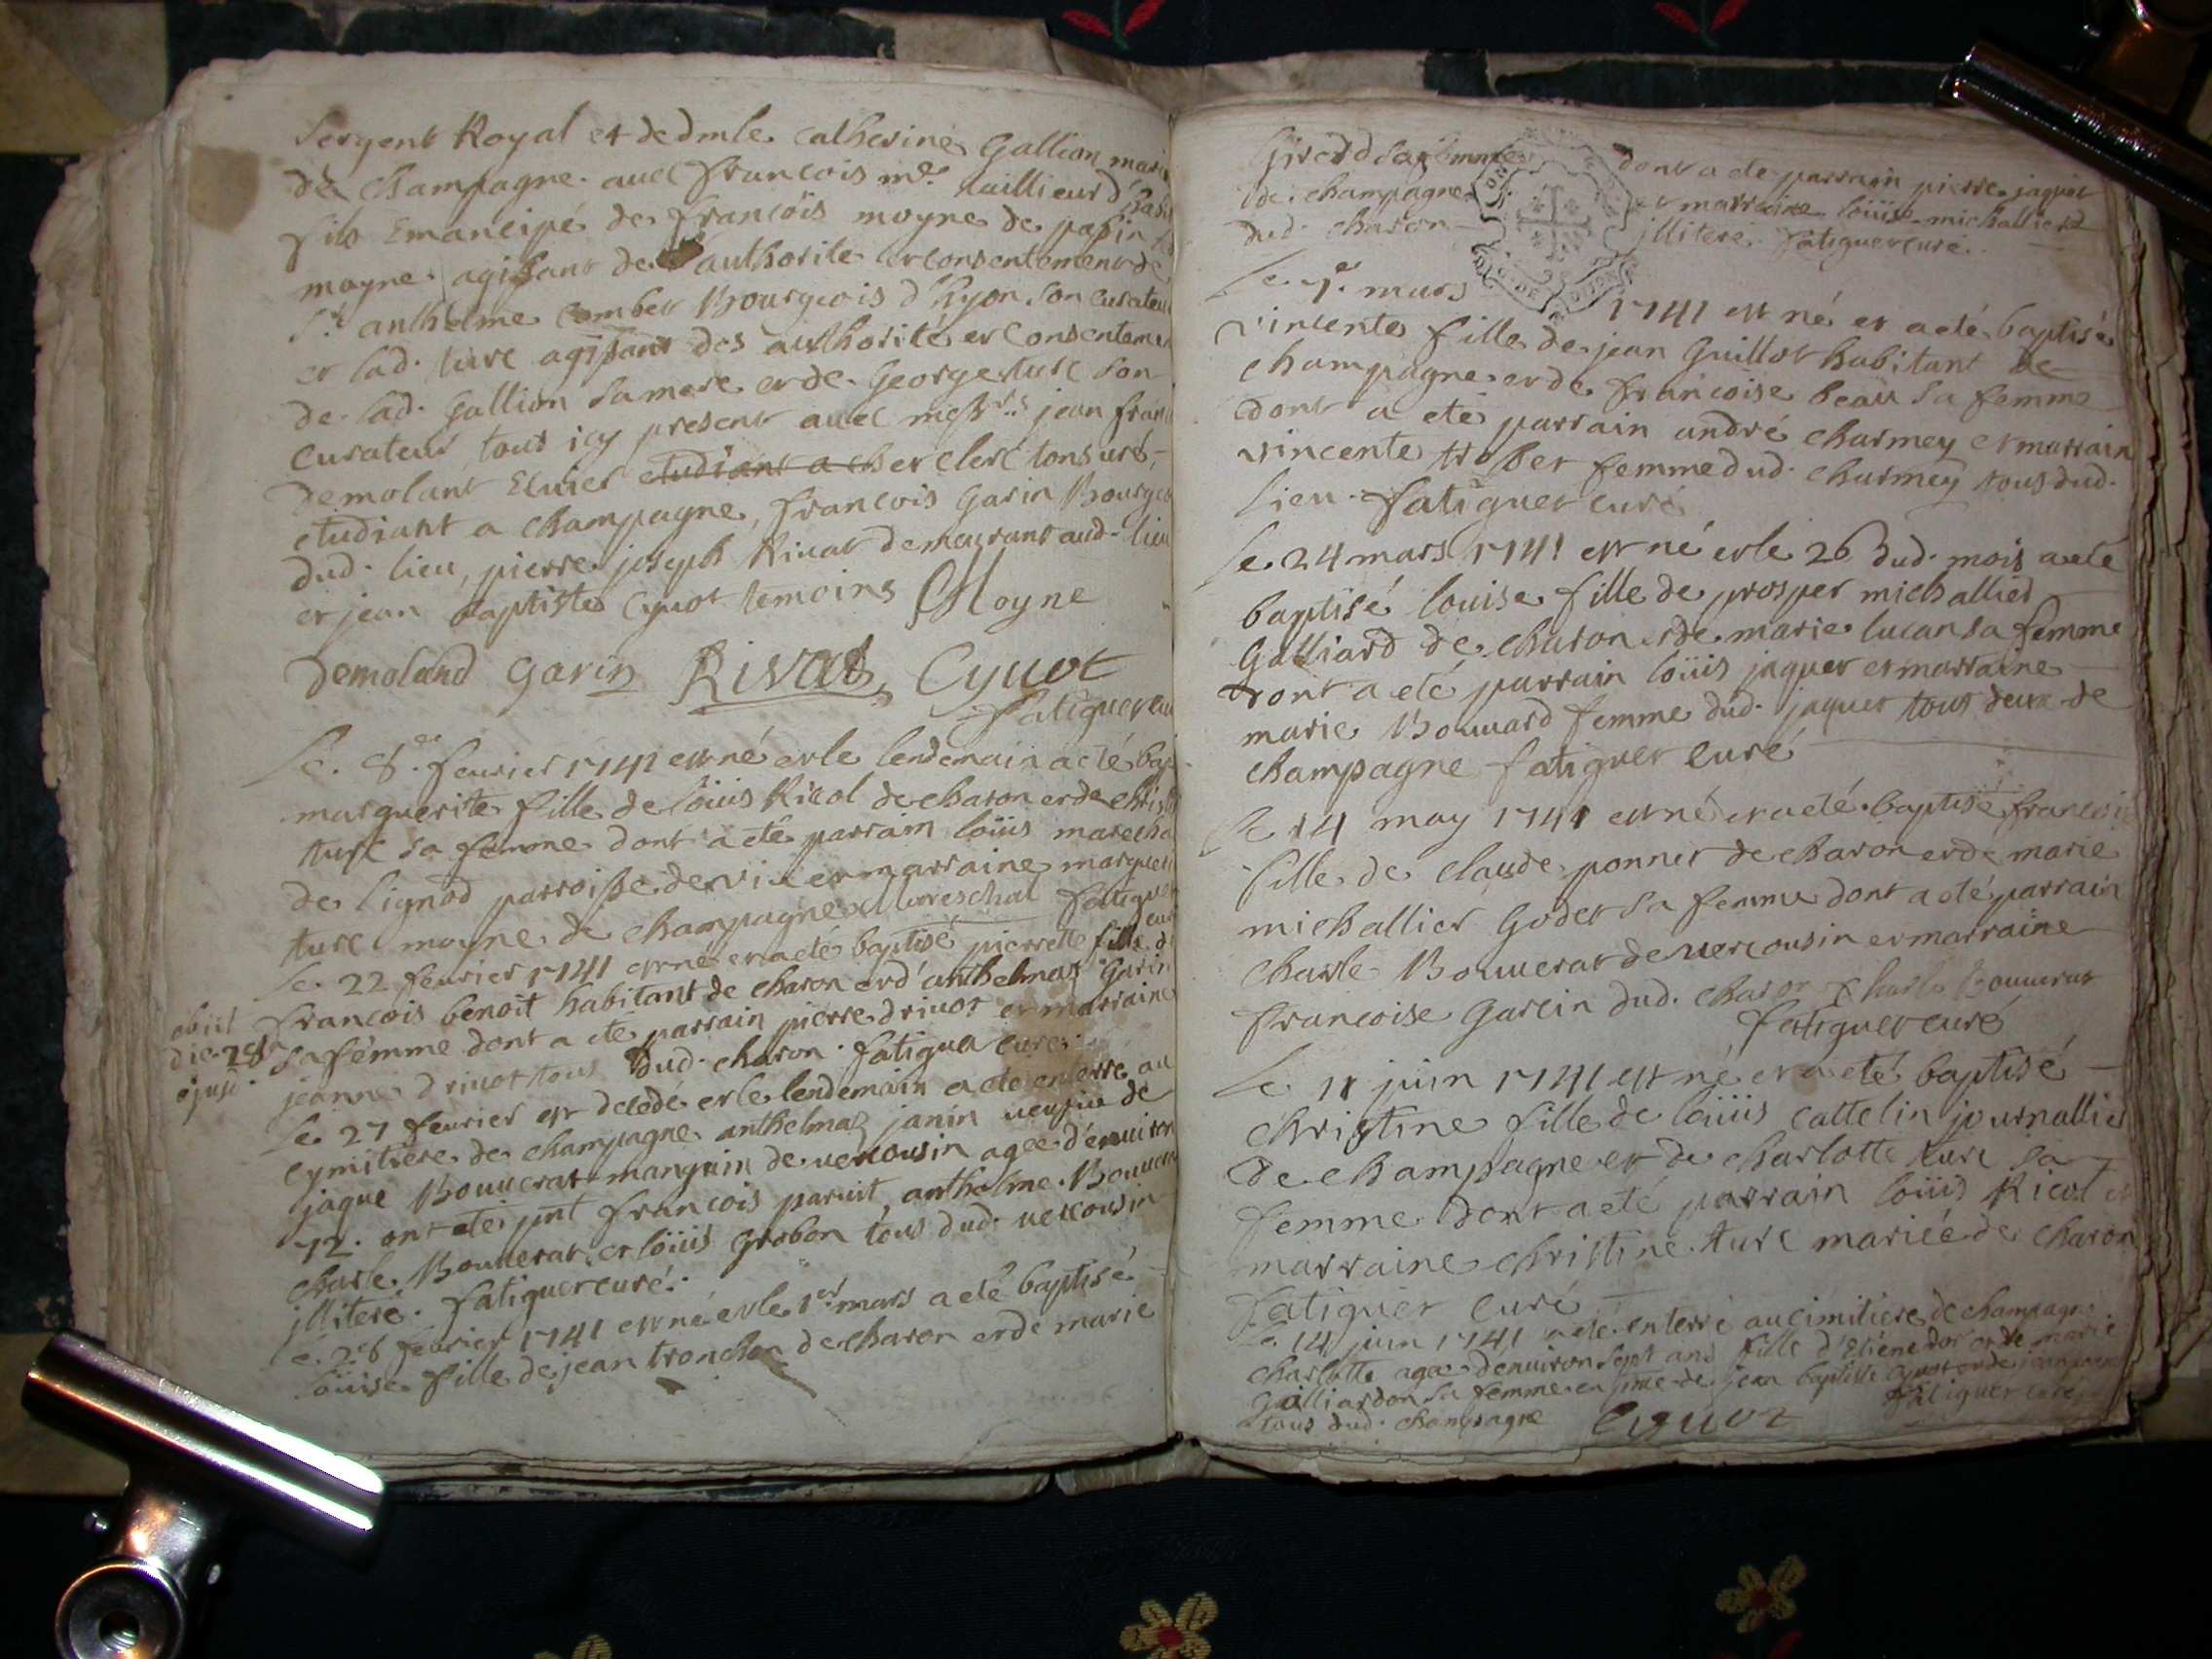 Sergent Royal et de dmle catherine Gallion
de champagne auec francois me taillieur d'
fils Emancipé de francois moyne de
moyne agissant de l'authorite et consentement de
Sr anthelme Comber Bourgeois d' son curateur
et lad. turc agissant des authorité et consentement
de lad. Gallion sa mere et de George turc son
curateur, tous icy present auec messrs jean
demolant Ecuier etudiant a ch et clerc tonsuré,
etudiant a champagne, francois Garin
dud. lieu, pierre joseph Rivat demeurant aud. lieu
et jean baptiste Cyuot temoins Moyne
Demoland Garin Rivat, Cyuot
fatiguet
le 8e feurier 1741 est né et le lendemain a eté
marguerite fille de loüis Ricol de charon et de
turc sa femme dont a eté parrain loüis
de lignod parroisse de et marraine
turc moyne de champagne Mareschal fatiguet
curé
le 22 feurier 1741 est né et a eté baptisé pierrette fille de
francois benoit habitant de charon et d'anthelmaz Garin
obiit
die 28a
ejusd.
sa femme dont a eté parrain pierre driuot et marraine
jeanne driuot tous dud. charon. fatiguet curé.
le 27 feurier est decedé et le lendemain a eté enterré au
cymitiere de champagne anthelmaz janin veufue de
jaque Bouuerat mangain de vercousin agée d'enuiron
72. ont eté pnt francois paruit, anthelme
charle Bouuerat et loüis grobon tous dud. vercousin
jlliteré. fatiguet curé.
le 28 feurier 1741 est né et le 1er mars a eté baptisé
loüise fille de jean tronchon de charon et de marie
Girerd sa femme dont a eté parrain pierre jaquet
de champagne et marraine loüise michallier
dud. charon jlliteré. fatiguet curé.
le 7e mars 1741 est né et a eté baptisé
vincente fille de jean Guillot habitant de
champagne et de francoise beau sa femme
dont a eté parrain andré charmey et marrain
vincente femme dud. charmey tous dud.
lieu. fatiguet curé
le 24 mars 1741 est né et le 26 dud. mois a eté
baptisé louise fille de prosper michallier
Galliard de charon et de marie lucan sa femme
dont a eté parrain loüis jaquet et marraine
marie Bouuard femme dud. jaquet tous deux de
champagne fatiguet curé
le 14 may 1741 est né et a eté baptisé
fille de claude ponnet de charon et de marie
michallier Godet sa femme dont a eté parrain
charle Bouuerat de vercousin et marraine
francoise Garcin dud. charon Charle Bouuerat
fatiguet curé
le 11 juin 1741 est né et a eté baptisé
christine fille de loüis cattelin journallier
de champagne et de charlotte turc sa
femme dont a eté parrain loüis Ricol et
marraine christine turc mariée de charon
fatiguet curé
le 14 juin 1741 a eté enterré au cimitiere de champagne
charlotte agée denuiron sept ans fille d'Etiene dor et de marie
Galliardon sa femme en pnce de jean baptiste Cyuot et de
tous dud. champagne Cyuot fatiguet curé